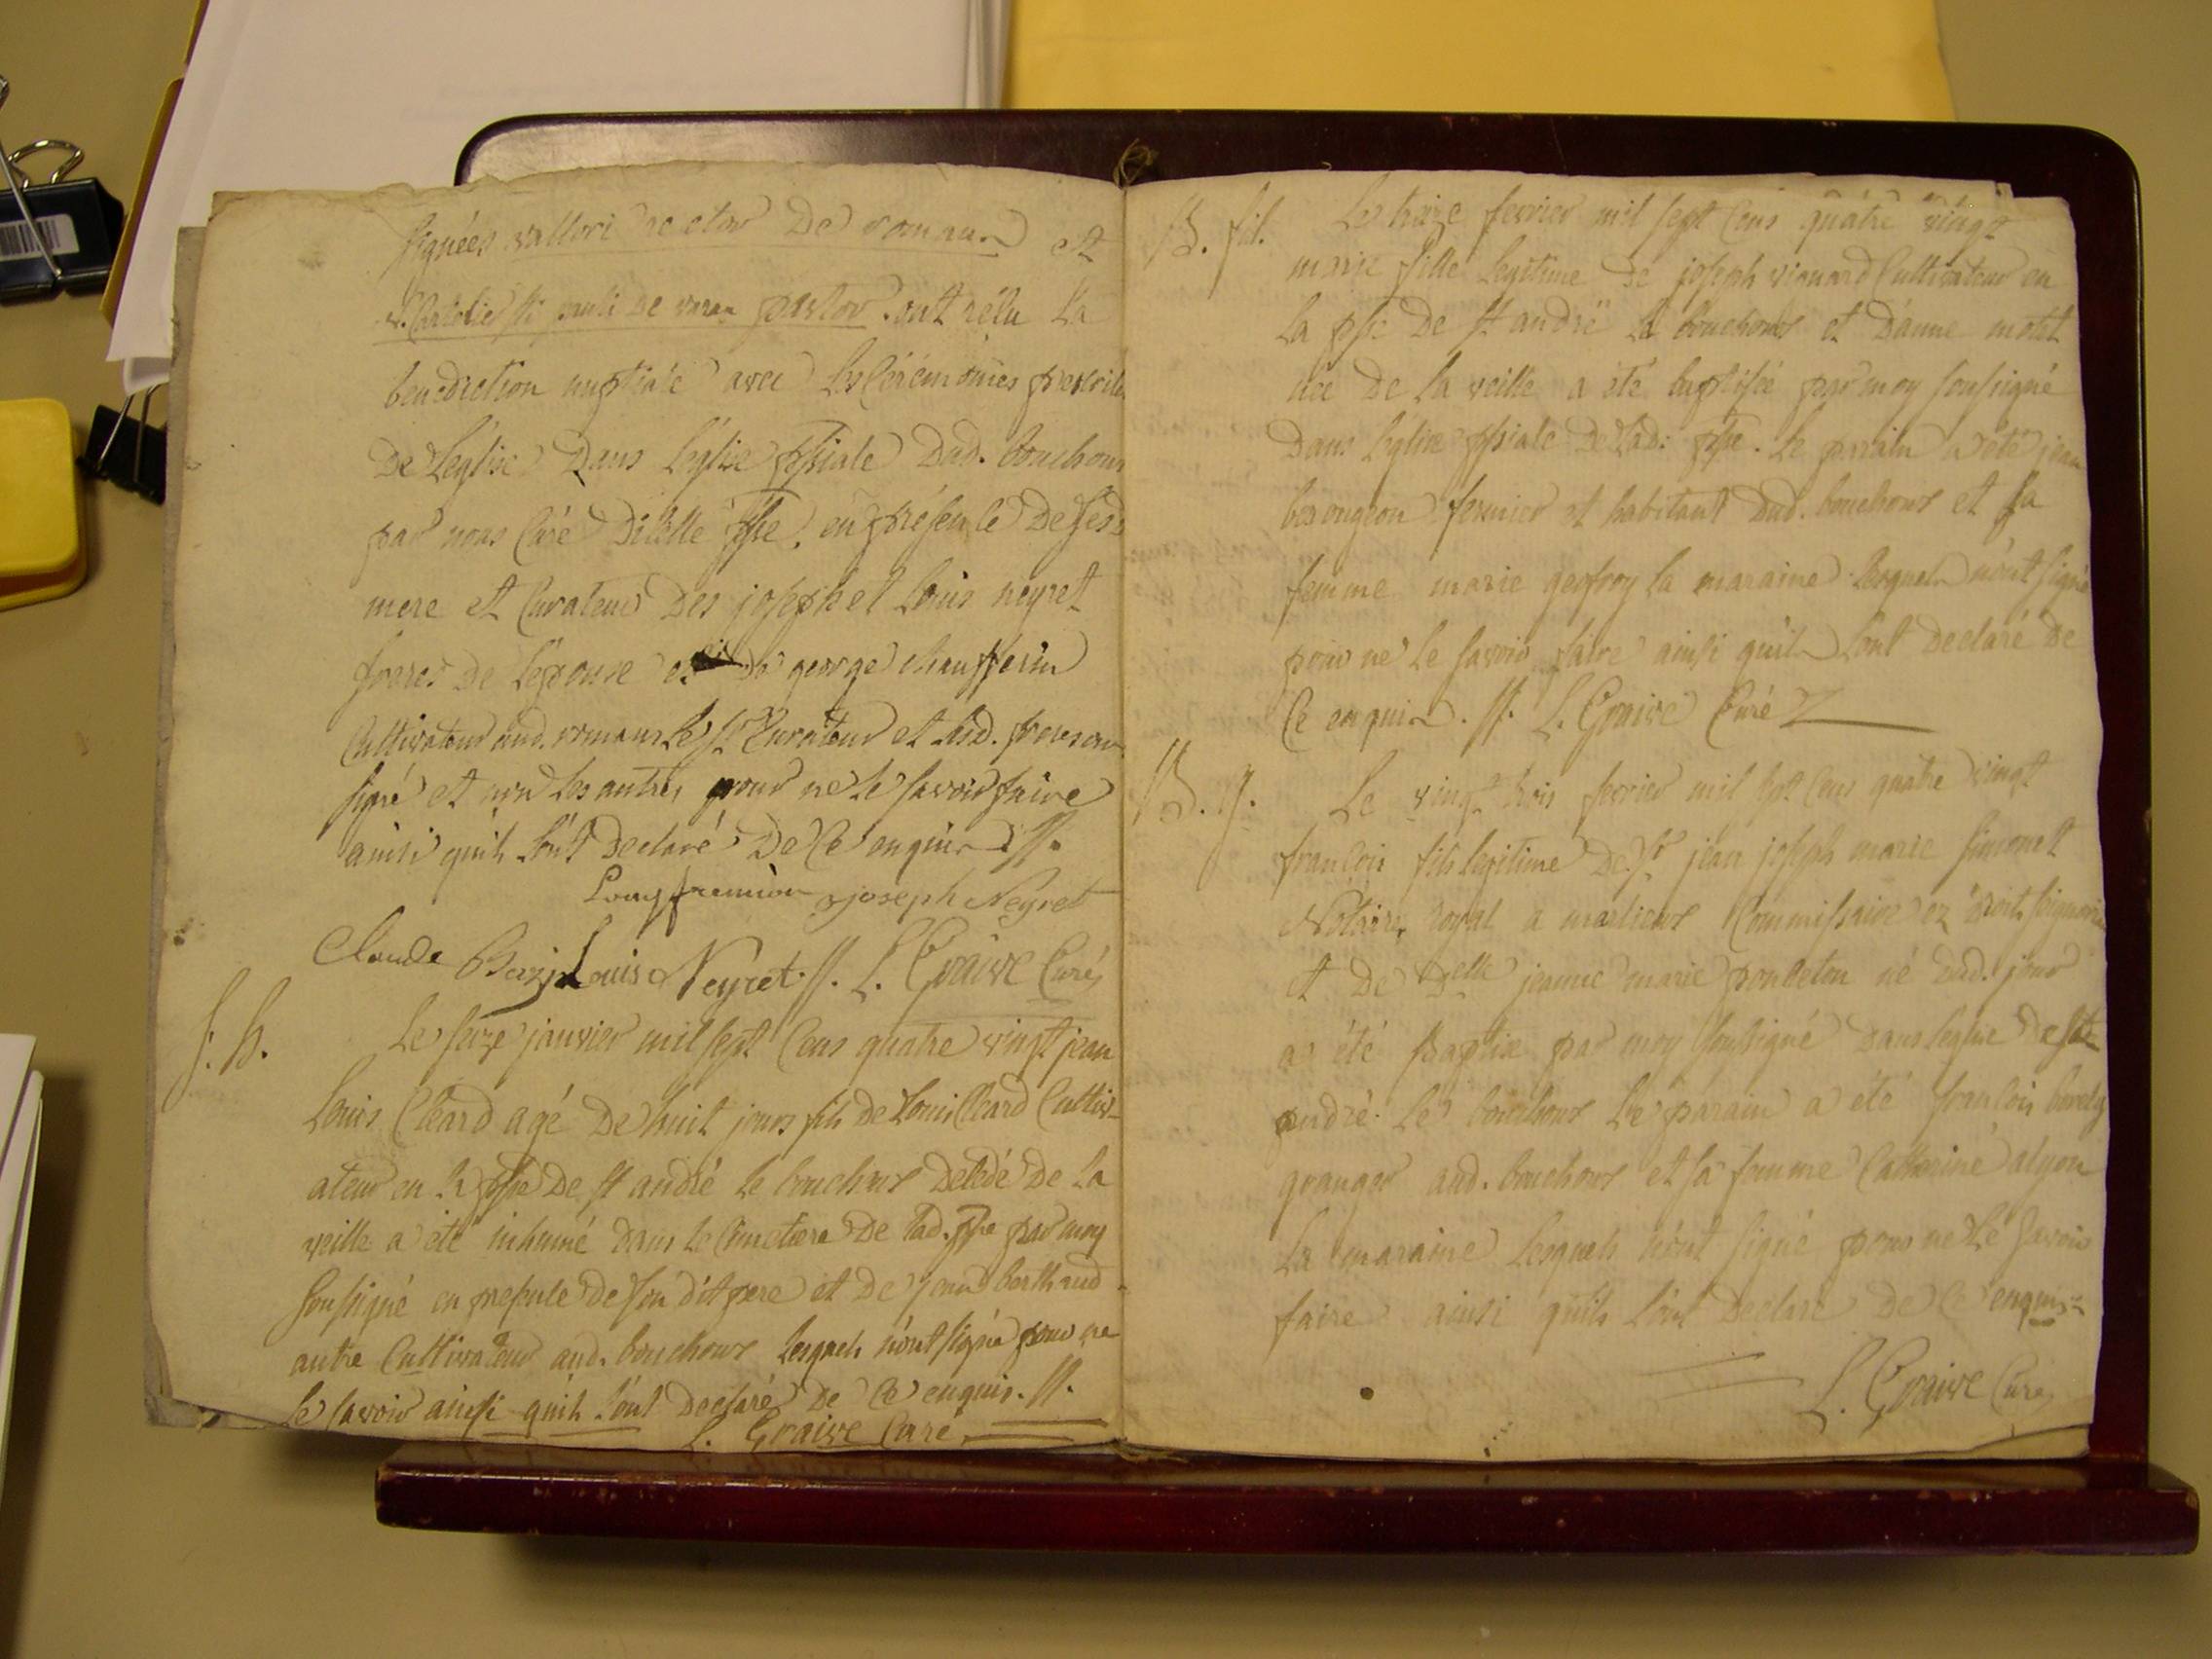 signées vallori rector De romans et
pastor. ont reçu la
benediction nuptiale avec les Cérémonies prescrites
De L'eglise Dans l'églize ppsiale Dud. bouchoux
par nous Curé Dicelle ppsse, en présence De ses
mere et Curateur Des joseph et Louis neyret
freres De lepouse george chaufferin
Cultivateur aud. romans Le sr Curateur et lesd. freres ont
signé et non Les autres pour ne le savoir faire
ainsi quils l'ont Declaré De Ce enquis //.
joseph Neyret
Claude Louis Neyret //. L. Graive Curé
s. h.
Le seize janvier mil sept Cens quatre vingt jean
Louis Cléard agé De huit jours fils de Louis Cléard Cultiv-
ateur en la ppsse De st andré le bouchoux Décédé De la
veille a été inhumé Dans le Cimetiere De lad. ppsse par moy
soussigné en presence De son dit pere et De jean berthaud
autre Cultivateur aud. bouchoux lesquels n'ont signé pour ne
le savoir ainsi quils l'ont Declaré De Ce enquis. //.
L. Graive Curé
B. fil.
Le treize fevrier mil sept Cens quatre vingt
marie fille Legitime De joseph vignard Cultivateur en
la ppsse De st andré le bouchoux et D'anne
née De la veille a été baptisée par moy soussigné
Dans l'église ppsiale De lad: ppsse. Le parrain a été jean
besongeon fermier et habitant Dud. bouchoux et sa
femme marie geofroy la maraine lesquels n'ont signé
pour ne le savoir faire ainsi quils l'ont Declaré De
Ce enquis. //. L. Graive Curé
B. f.
Le vingt trois fevrier mil sept Cens quatre vingt
francois fils legitime De sr jean joseph marie simonet
Notaire royal a marlieux Commissaire ez droits seigneuriaux
et De Delle jeanne marie poncteton né Dud. jour
a été Baptisé par moy soussigné Dans leglise De st
andré le bouchoux Le parain a été francois
granger aud. bouchoux et sa femme Catherine alyon
La maraine Lesquels n'ont signé pour ne le savoir
faire ainsi quils l'ont Declaré De Ce enquis
L. Graive Curé